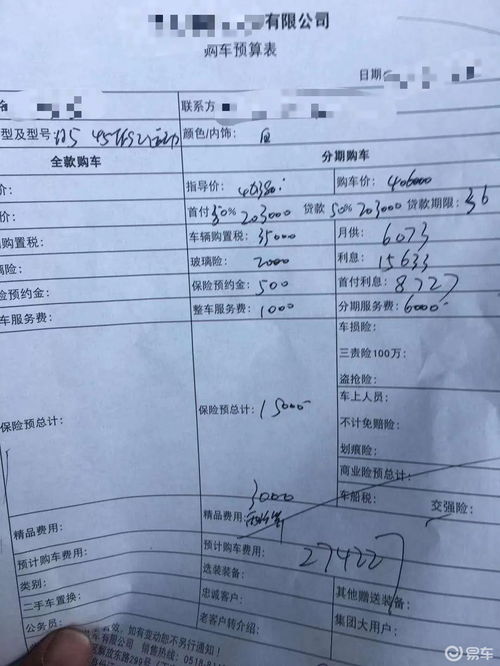 有限公司
购车预算表
日期
联系方
型及型号: Q5 45TFSI 运动 颜色/内饰: 白
全款购车 分期购车
价: 指导价: 购车价: 406000
价: 首付 50% 203000 贷款 50% 203000 贷款期限: 36
购置税: 车辆购置税: 35000 月供: 6073
玻璃险: 玻璃险: 2000 利息: 15633
险预约金: 保险预约金: 500 首付利息: 8727
车服务费: 整车服务费: 1000 分期服务费: 6000
车损险:
三责险100万:
盗抢险:
保险预总计: 保险预总计: 15000 车上人员:
不计免赔险:
划痕险:
商业险预总计:
3000 车船税: 交强险:
精品费用: 精品费用:
预计购车费用: 预计购车费用: 274227
类别: 选装装备:
二手车置换: 忠诚客户: 其他赠送装备:
公务员: 老客户转介绍: 集团大用户:
效, 如有变动恕不另行通知!
车有限公司 销售热线: 0518-8
区解放东路299号
易车